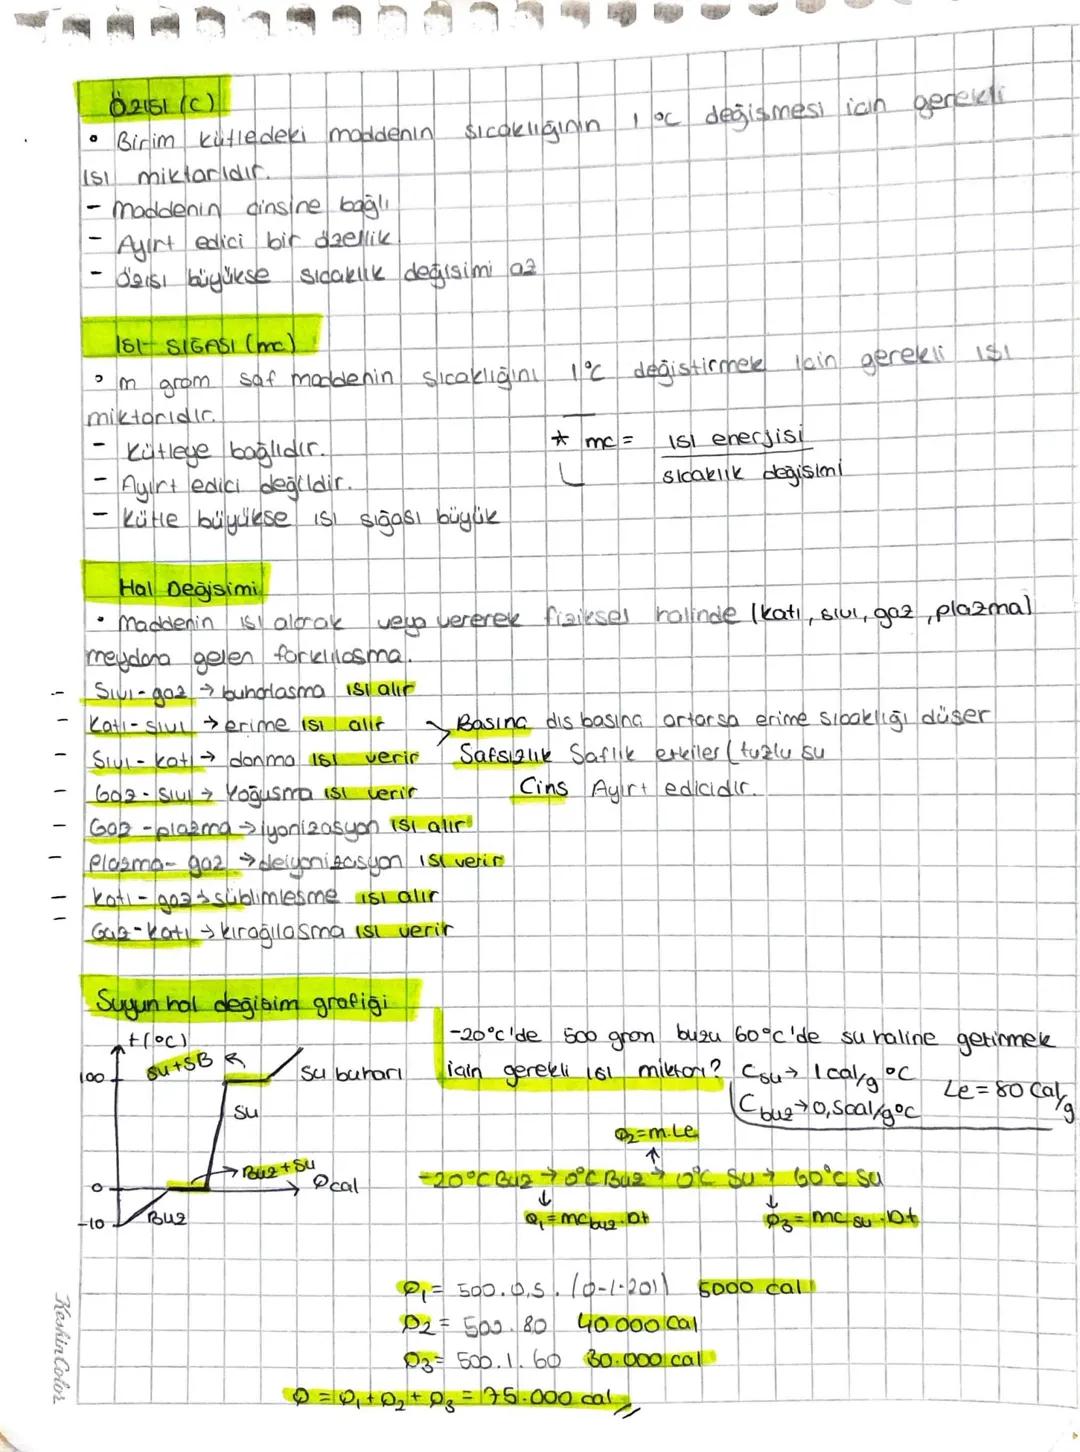 Özısı (C)
• Birim kütledeki maddenin sıcaklığının 1 °C değişmesi için gerekli
ısı miktarıdır.
- Maddenin cinsine bağlı
- Ayırt edici bir özellik
- Özısı büyükse sıcaklık değişimi az
Isı-SIĞASI (mc)
• m gram saf maddenin sıcaklığını 1°C değiştirmek için gerekli ısı
miktarıdır.
- Kütleye bağlıdır.
- Ayırt edici değildir.
- Kütle büyükse ısı sığası büyük
* mc = ısı enerjisi
sıcaklık değişimi
Hal Değişimi
• Maddenin ısı alarak veya vererek fiziksel halinde (katı, sıvı, gaz, plazma)
meydana gelen farklılaşma.
- Sıvı-gaz → buharlaşma ısı alır
- Katı-sıvı → erime ısı alır
- Sıvı-katı → donma ısı verir
- Gaz-sıvı → Yoğuşma ısı verir
- Gaz-plazma → iyonizasyon ısı alır
- Plazma-gaz → deiyonizasyon ısı verir
- Katı-gaz → süblimleşme ısı alır
- Gaz-katı → kırağılaşma ısı verir
Basınç dış basınç artarsa erime sıcaklığı düşer
Safsızlık Saflık etkiler (tuzlu su
Cins Ayırt edicidir.
Suyun hal değişim grafiği
t(°C)
100
su+SB
Su buharı
Su
Buz+su
Qcal
0
-10
Buz
-20°C'de 500 gram buzu 60°C'de su haline getirmek
için gerekli ısı miktarı? Csu → 1cal/g°C
Cbuz → 0,5cal/g°C
Le = 80 Cal/g
Q2=m.Le
-20°C Buz → 0°C Buz → 0°C Su → 60°C Su
Q1=mcbuz.Dt
Q3=mcsu.Dt
Q1= 500.0,5.(0-(-20)) 5000 cal
Q2= 500.80 40000 Cal
Q3= 500.1.60 30.000 cal
Q=Q1+Q2+Q3=75.000 cal
KeskinColor